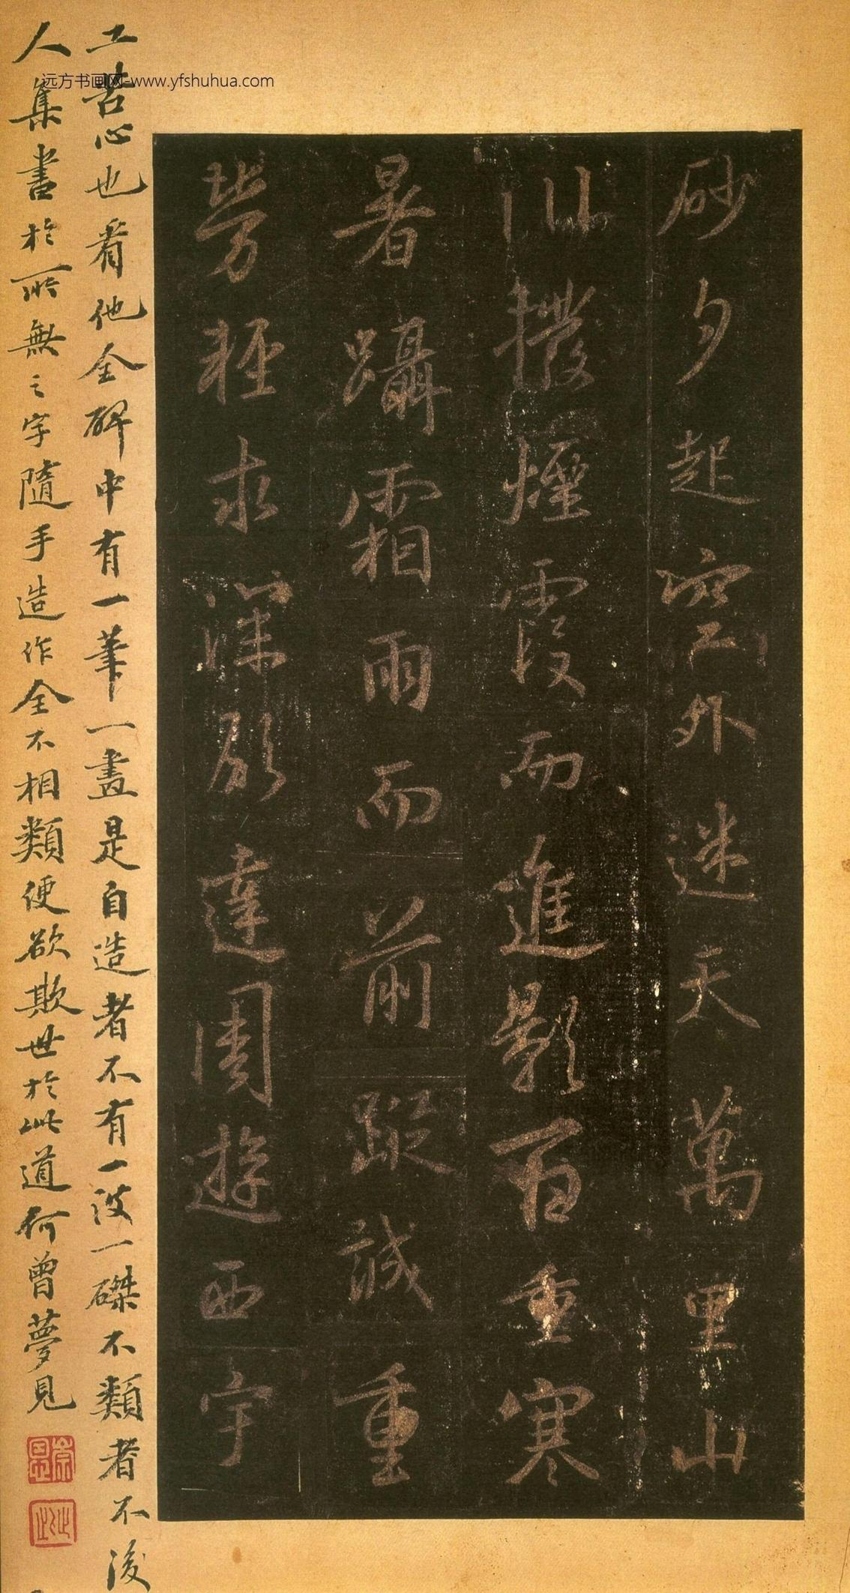 砂夕起空外迷天萬里山
川撥煙霞而進影百重寒
暑躡霜雨而前蹤誠重
勞輕求深願達周遊西宇
工苦心也看他全碑中有一筆一畫是自造者不有一波一磔不類者不後
人集書於所無之字隨手造作全不相類便欲欺世於此道何曾夢見
远方书画网-www.yfshuhua.com